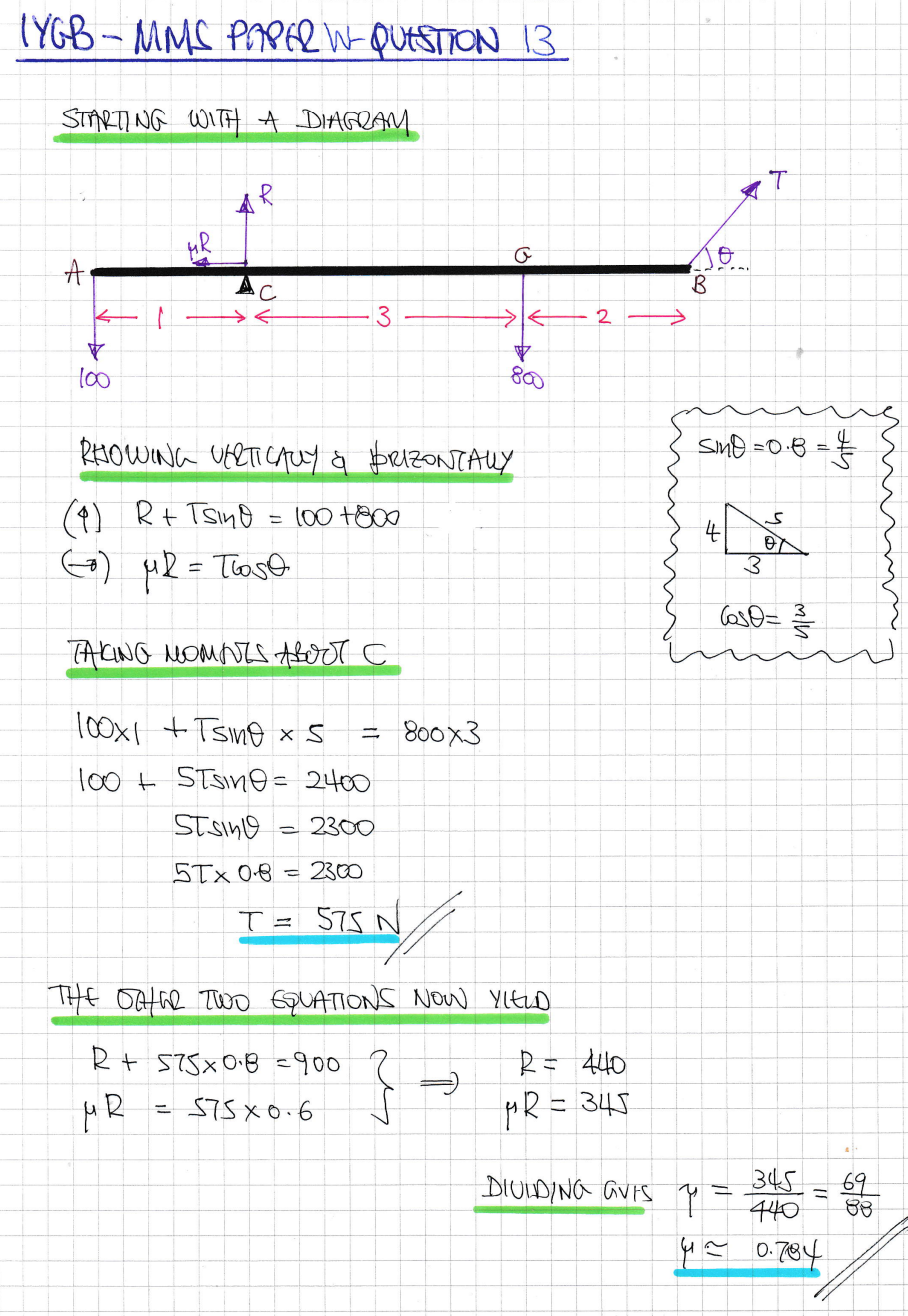 IYGB - MMS PAPER W - QUESTION 13
STARTING WITH A DIAGRAM
R
T
μR
θ
A
G
C
B
1
3
2
100
800
RESOLVING VERTICALLY & HORIZONTALLY
(↑) R + Tsinθ = 100 + 800
(→) μR = Tcosθ
sinθ = 0.8 = 4/5
4
5
θ
3
cosθ = 3/5
TAKING MOMENTS ABOUT C
100×1 + Tsinθ × 5 = 800×3
100 + 5Tsinθ = 2400
5Tsinθ = 2300
5T × 0.8 = 2300
T = 575 N
THE OTHER TWO EQUATIONS NOW YIELD
R + 575×0.8 = 900
μR = 575 × 0.6
⟹
R = 440
μR = 345
DIVIDING GIVES μ = 345/440 = 69/88
μ ≃ 0.784